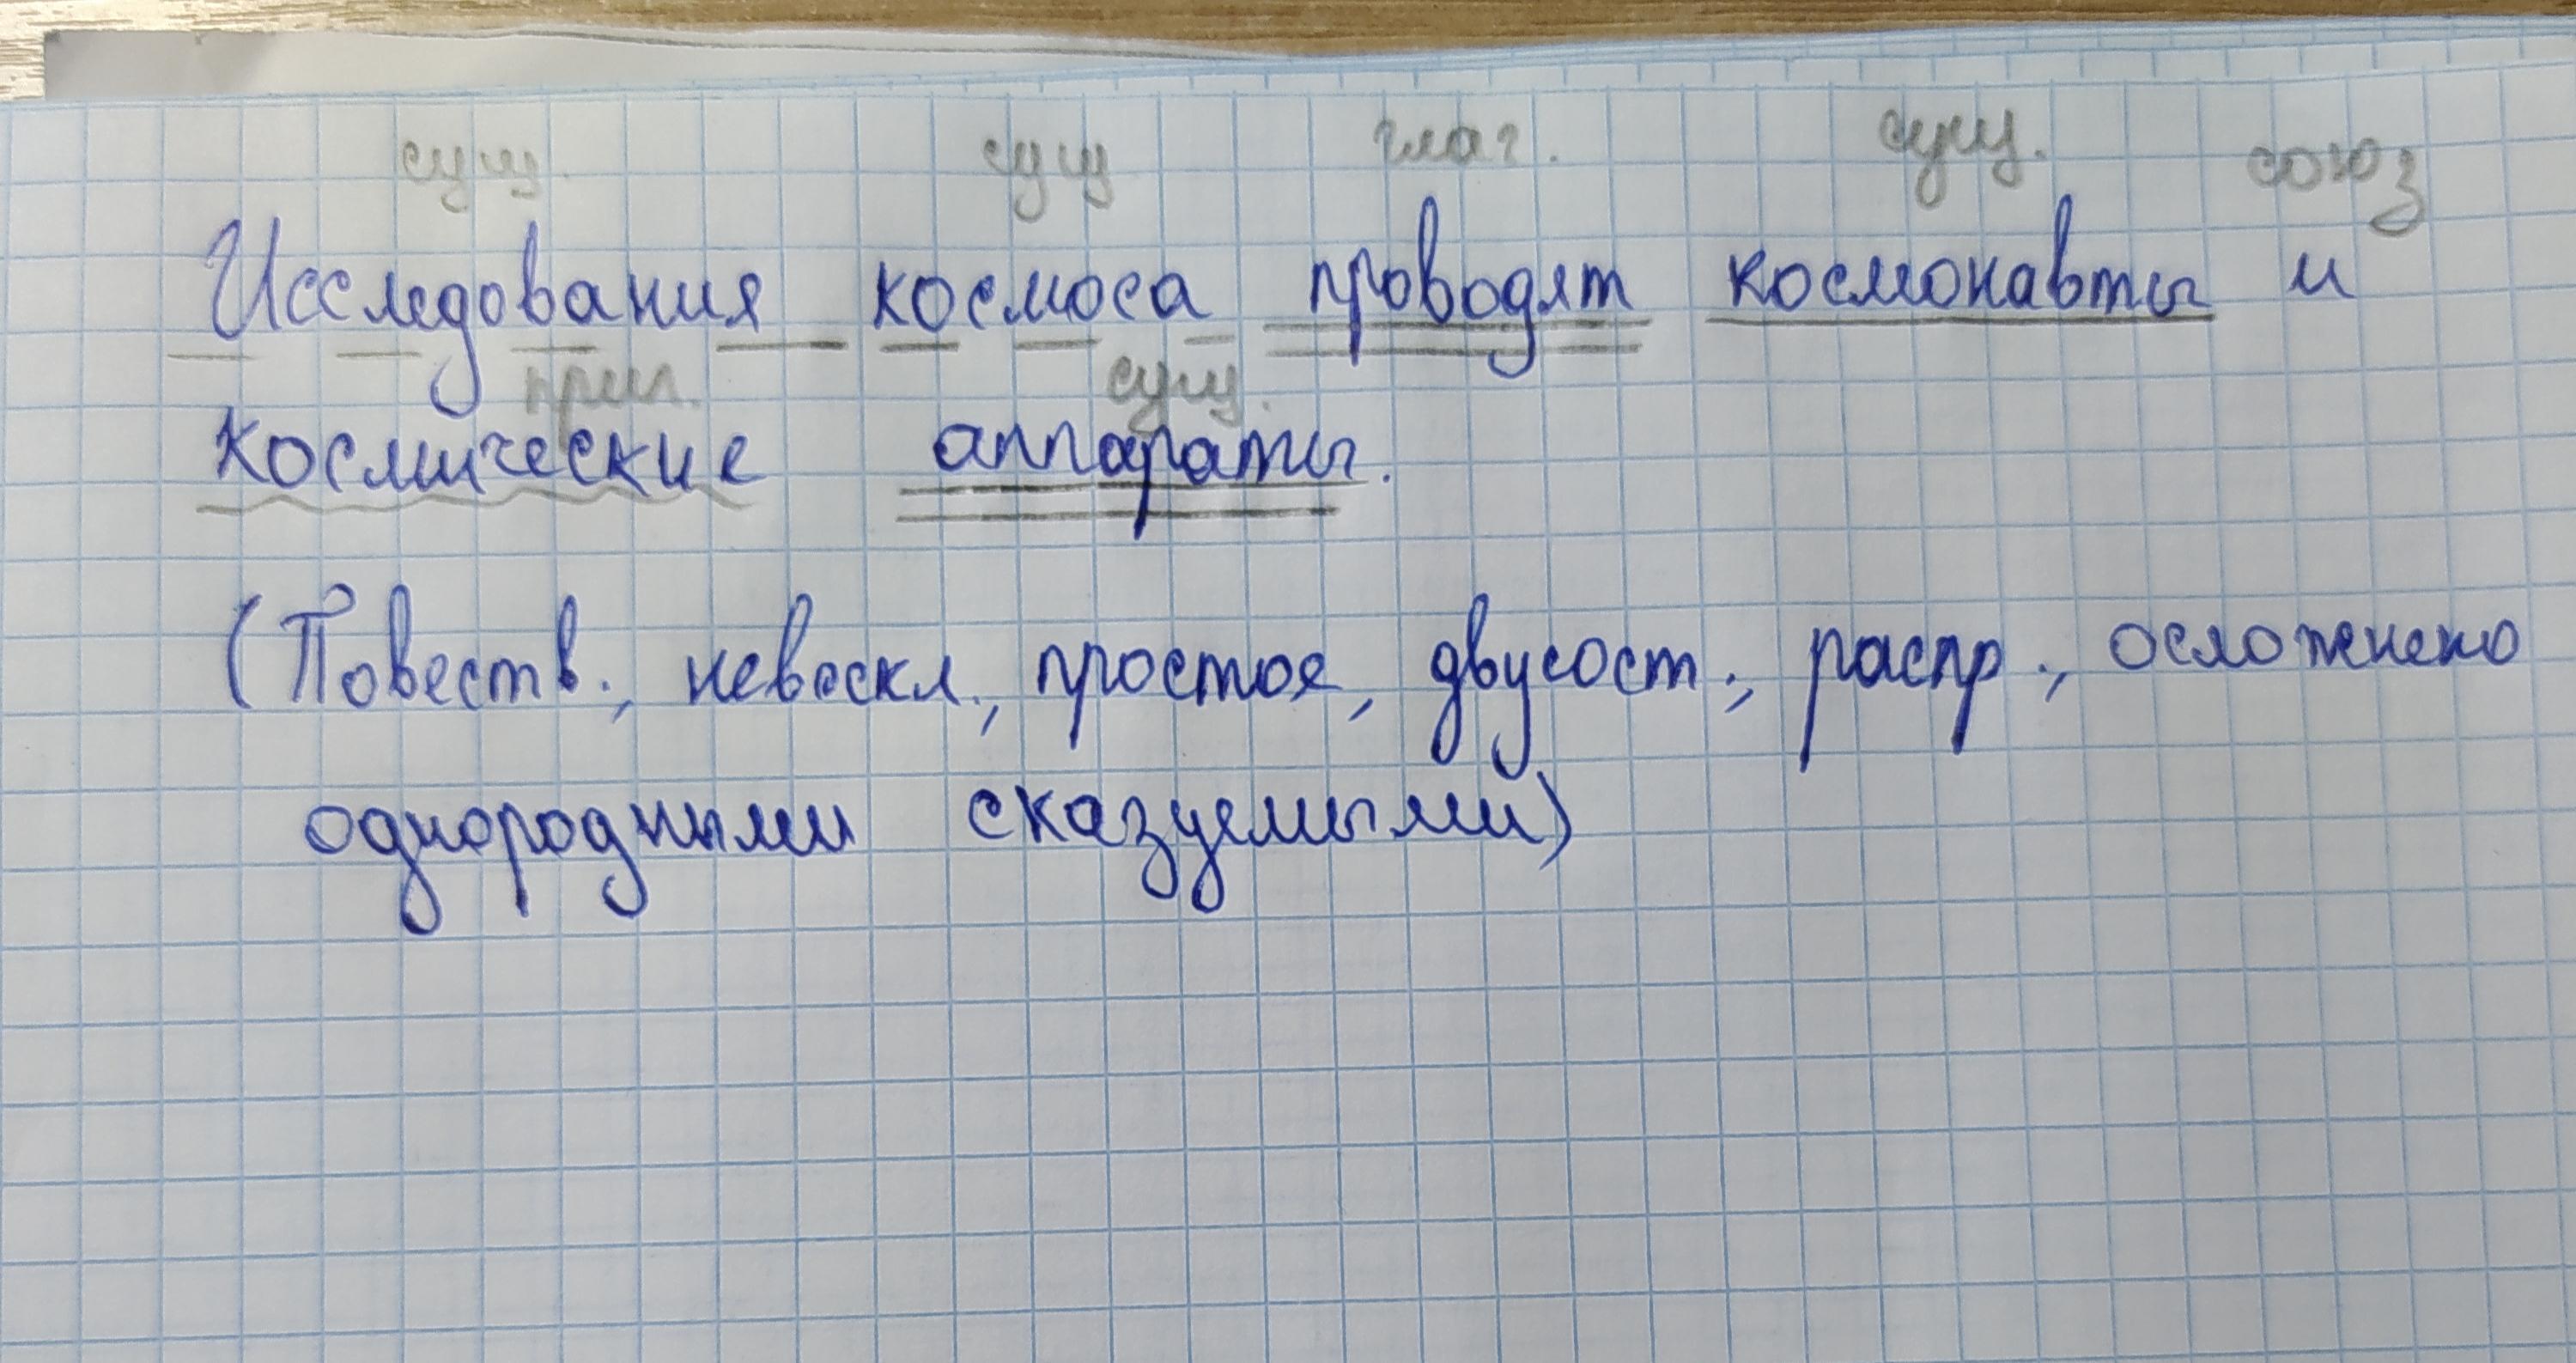 сущ. сущ глаг. сущ. союз
Исследования космоса проводят космонавты и
прил. сущ.
космические аппараты.
(Повеств., невоскл., простое, двусост., распр., осложнено
однородными сказуемыми)